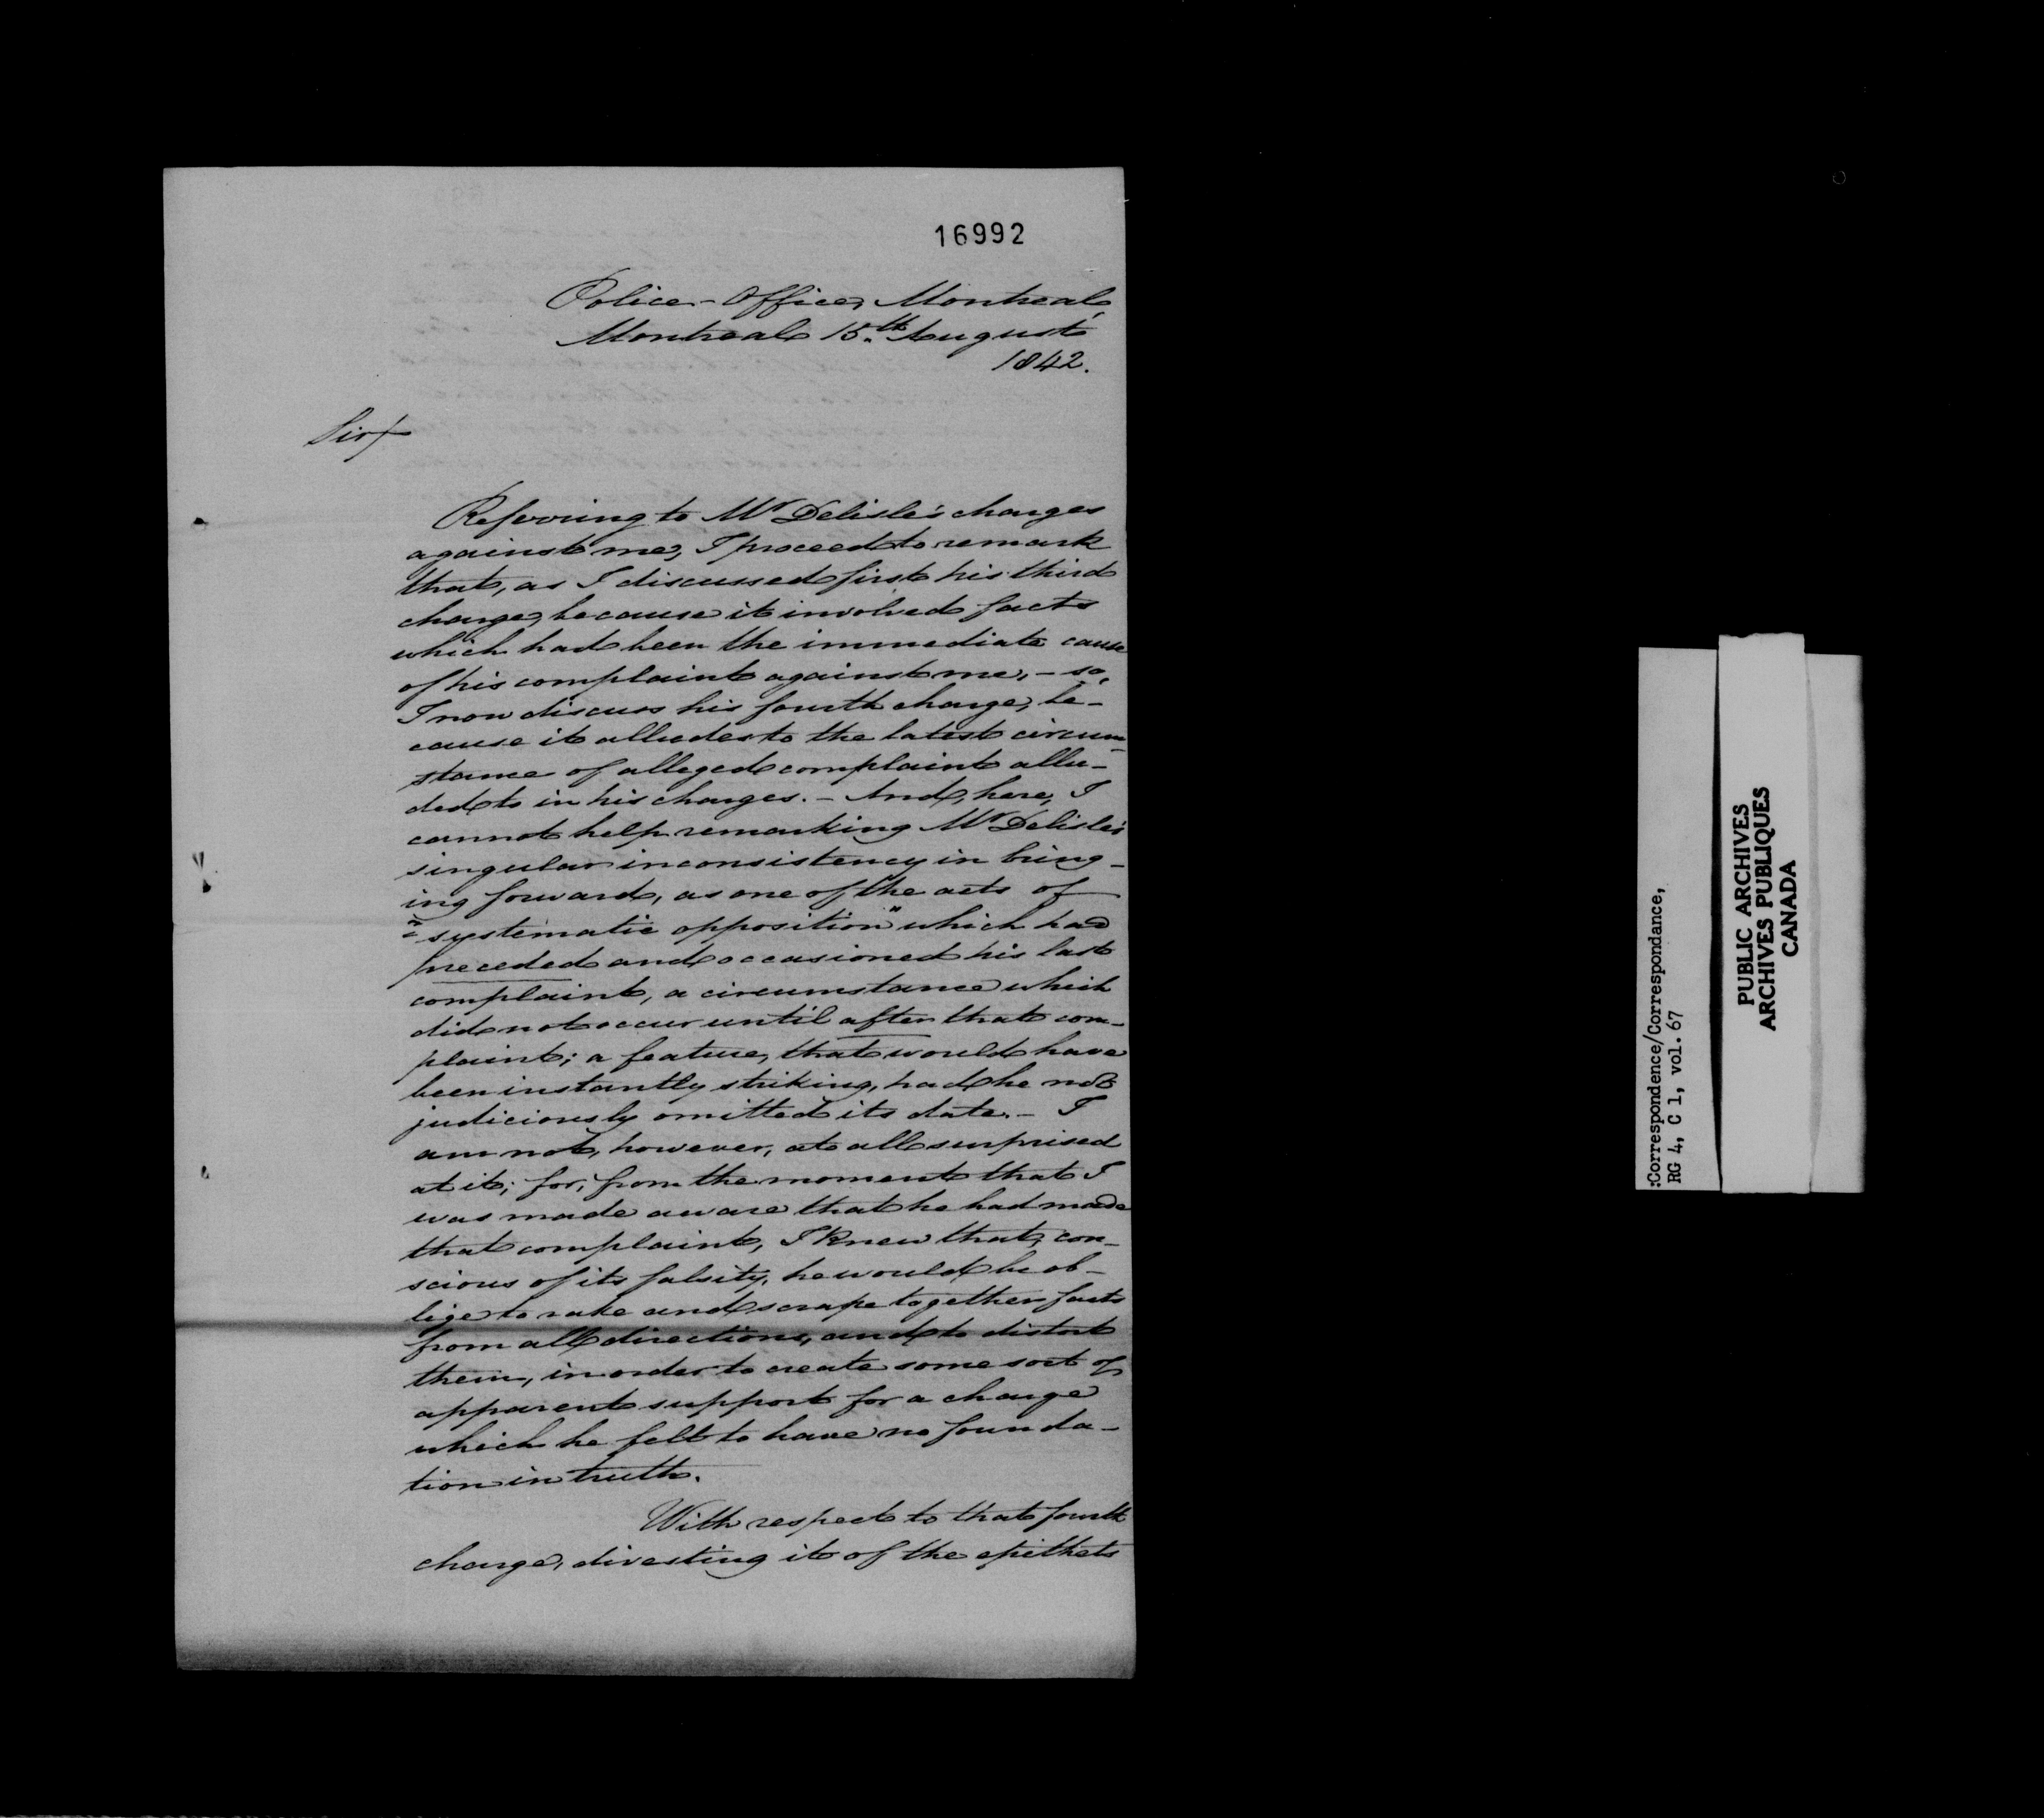 16992
Police-Office, Montreal,
Montreal 15th August
1842.
Sir/
Referring to Mr Delisle's charges
against me, I proceed to remark
that, as I discussed first his third
charge, because it involved facts
which had been the immediate cause
of his complaint against me, - so,
I now discuss his fourth charge, be-
cause it alludes to the latest circum-
stance of alleged complaint allu-
ded to in his charges. - And, here, I
cannot help remarking Mr Delisle's
singular inconsistency in bring-
ing forward, as one of the acts of
"systematic opposition" which had
preceded and occasioned his last
complaint, a circumstance which
did not occur until after that com-
plaint; a feature, that would have
been instantly striking, had he not
judiciously omitted its date. - I
am not, however, at all surprised
at it; for, from the moment that I
was made aware that he had made
that complaint, I knew that, con-
scious of its falsity, he would be ob-
lige to rake and scrape together facts
from all directions, and to distort
them, in order to create some sort of
apparent support for a charge
which he felt to have no founda-
tion in truth.
With respect to that fourth
charge, divesting it of the epithets
:Correspondence/Correspondance,
RG 4, C 1, vol. 67
PUBLIC ARCHIVES
ARCHIVES PUBLIQUES
CANADA